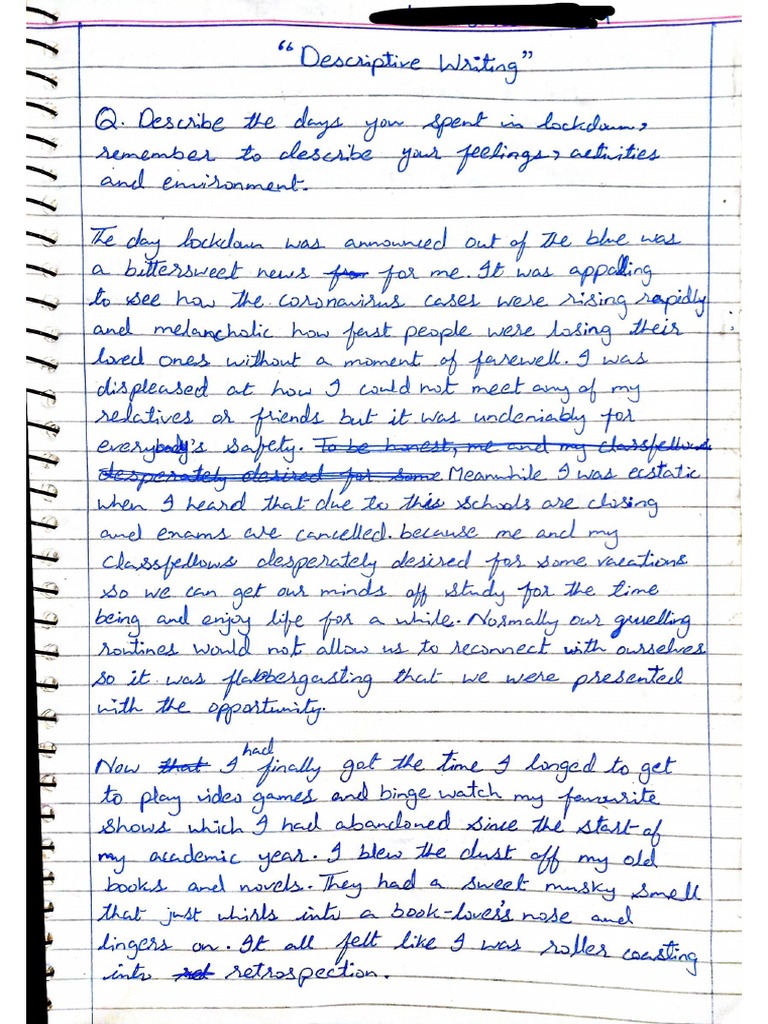 "Descriptive Writing"
Q. Describe the days you spent in lockdown,
remember to describe your feelings, activities
and environment.
The day lockdown was announced out of the blue was
a bittersweet news for me. It was appalling
to see how the coronavirus cases were rising rapidly
and melancholic how fast people were losing their
loved ones without a moment of farewell. I was
displeased at how I could not meet any of my
relatives or friends but it was undeniably for
everybody's safety. To be honest, me and my classfellows
desperately desired for some Meanwhile I was ecstatic
when I heard that due to this schools are closing
and exams are cancelled. because me and my
classfellows desperately desired for some vacations
so we can get our minds off study for the time
being and enjoy life for a while. Normally our gruelling
routines would not allow us to reconnect with ourselves
so it was flabbergasting that we were presented
with the opportunity.
Now that I had finally got the time I longed to get
to play video games and binge watch my favourite
shows which I had abandoned since the start of
my academic year. I blew the dust off my old
books and novels. They had a sweet musky smell
that just whirls into a book-lover's nose and
lingers on. It all felt like I was roller coasting
into retrospection.